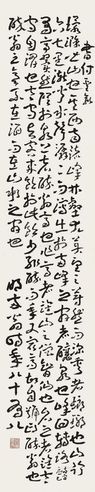 環滁皆山也其西南諸峰林壑尤美望之蔚然而深秀者瑯琊也山行
六七里漸聞水聲潺潺而瀉出於兩峰之間者釀泉也峰回路轉有亭
翼然臨於泉上者醉翁亭也作亭者誰山之僧智仙也名之者誰太
守自謂也太守與客來飲於此飲少輒醉而年又最高故自號曰醉翁也
醉翁之意不在酒而在山水之間也 時年八十